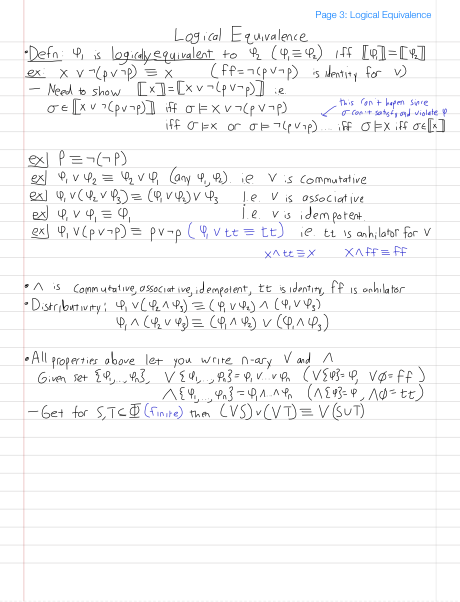 Page 3: Logical Equivalence
Logical Equivalence
• Defn: φ₁ is logically equivalent to φ₂ (φ₁≡φ₂) iff ⟦φ₁⟧=⟦φ₂⟧
ex: x ∨ ¬(p∨¬p) ≡ x (ff=¬(p∨¬p) is identity for ∨)
— Need to show ⟦x⟧=⟦x ∨ ¬(p∨¬p)⟧ i.e.
σ∈⟦x ∨ ¬(p∨¬p)⟧ iff σ⊨x∨¬(p∨¬p)
this can't happen since
σ can't satisfy and violate φ
iff σ⊨x or σ⊨¬(p∨¬p)... iff σ⊨x iff σ∈⟦x⟧
ex| P≡¬(¬P)
ex| φ₁∨φ₂≡φ₂∨φ₁ (any φ₁,φ₂). i.e. ∨ is commutative
ex| φ₁∨(φ₂∨φ₃)≡(φ₁∨φ₂)∨φ₃ i.e. ∨ is associative
ex| φ₁∨φ₁≡φ₁ i.e. ∨ is idempotent.
ex| φ₁∨(p∨¬p)≡p∨¬p (φ₁∨tt≡tt) i.e. tt is anhilator for ∨
x∧tt≡x x∧ff≡ff
• ∧ is commutative, associative, idempotent, tt is identity, ff is anhilator
• Distributivity: φ₁∨(φ₂∧φ₃)≡(φ₁∨φ₂)∧(φ₁∨φ₃)
φ₁∧(φ₂∨φ₃)≡(φ₁∧φ₂)∨(φ₁∧φ₃)
• All properties above let you write n-ary ∨ and ∧
Given set {φ₁,...,φₙ}, ∨{φ₁,...,φₙ}=φ₁∨...∨φₙ (∨{φ}=φ, ∨∅=ff)
∧{φ₁,...,φₙ}=φ₁∧...∧φₙ (∧{φ}=φ, ∧∅=tt)
— Get for S,T⊆Φ (finite) then (∨S)∨(∨T)≡∨(S∪T)